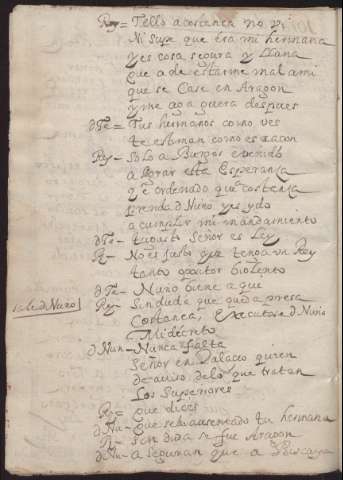 Rey= Tello a costança no vi
Ni supe que era mi hermana
y es cosa segura y llana
que a de estarme mal a mi
que se Case en Aragon
y me aga guera despues
dTe= Tus hermanos como ves
te estiman como es raçon
Rey= Solo a Burgos e venido
a lograr esta Esperança
q e ordenado que costança
prenda d Nuño y es ydo
a cumplir mi mandamiento
dTe- tu gusto Señor es Ley
Re- No es justo que tenga vn Rey
tanto
dTe- Nuño biene a qui
sale d Nuño
Rey- Sin duda que queda presa
Costança, d Nuño
Mi decreto
d Nuñ- Nunca falta
Señor en Palacio quien
de aviso de lo que tratan
Los Superiores
Rey= que dices
d Nu- que se la ausentado tu hermana
R- sin duda se fue Aragon
d Nu- a seguran que a Vizcaya